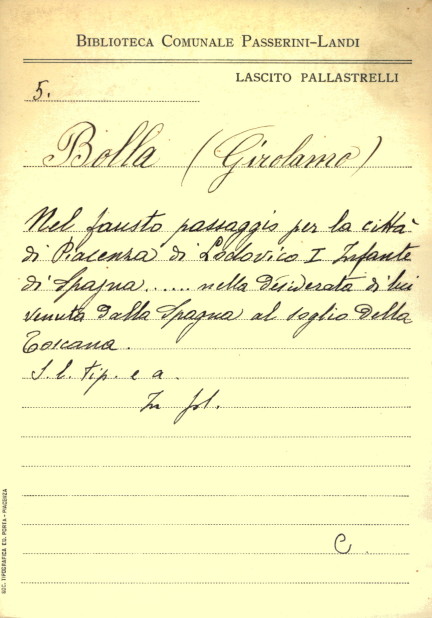 BIBLIOTECA COMUNALE PASSERINI-LANDI
LASCITO PALLASTRELLI
5.
Bolla (Girolamo)
Nel fausto passaggio per la città
di Piacenza di Lodovico I Infante
di Spagna...... nella desiderata di lui
venuta dalla Spagna al soglio della
Toscana.
S. l. tip. e a.
In fol.
C.
SOC. TIPOGRAFICA ED. PORTA - PIACENZA